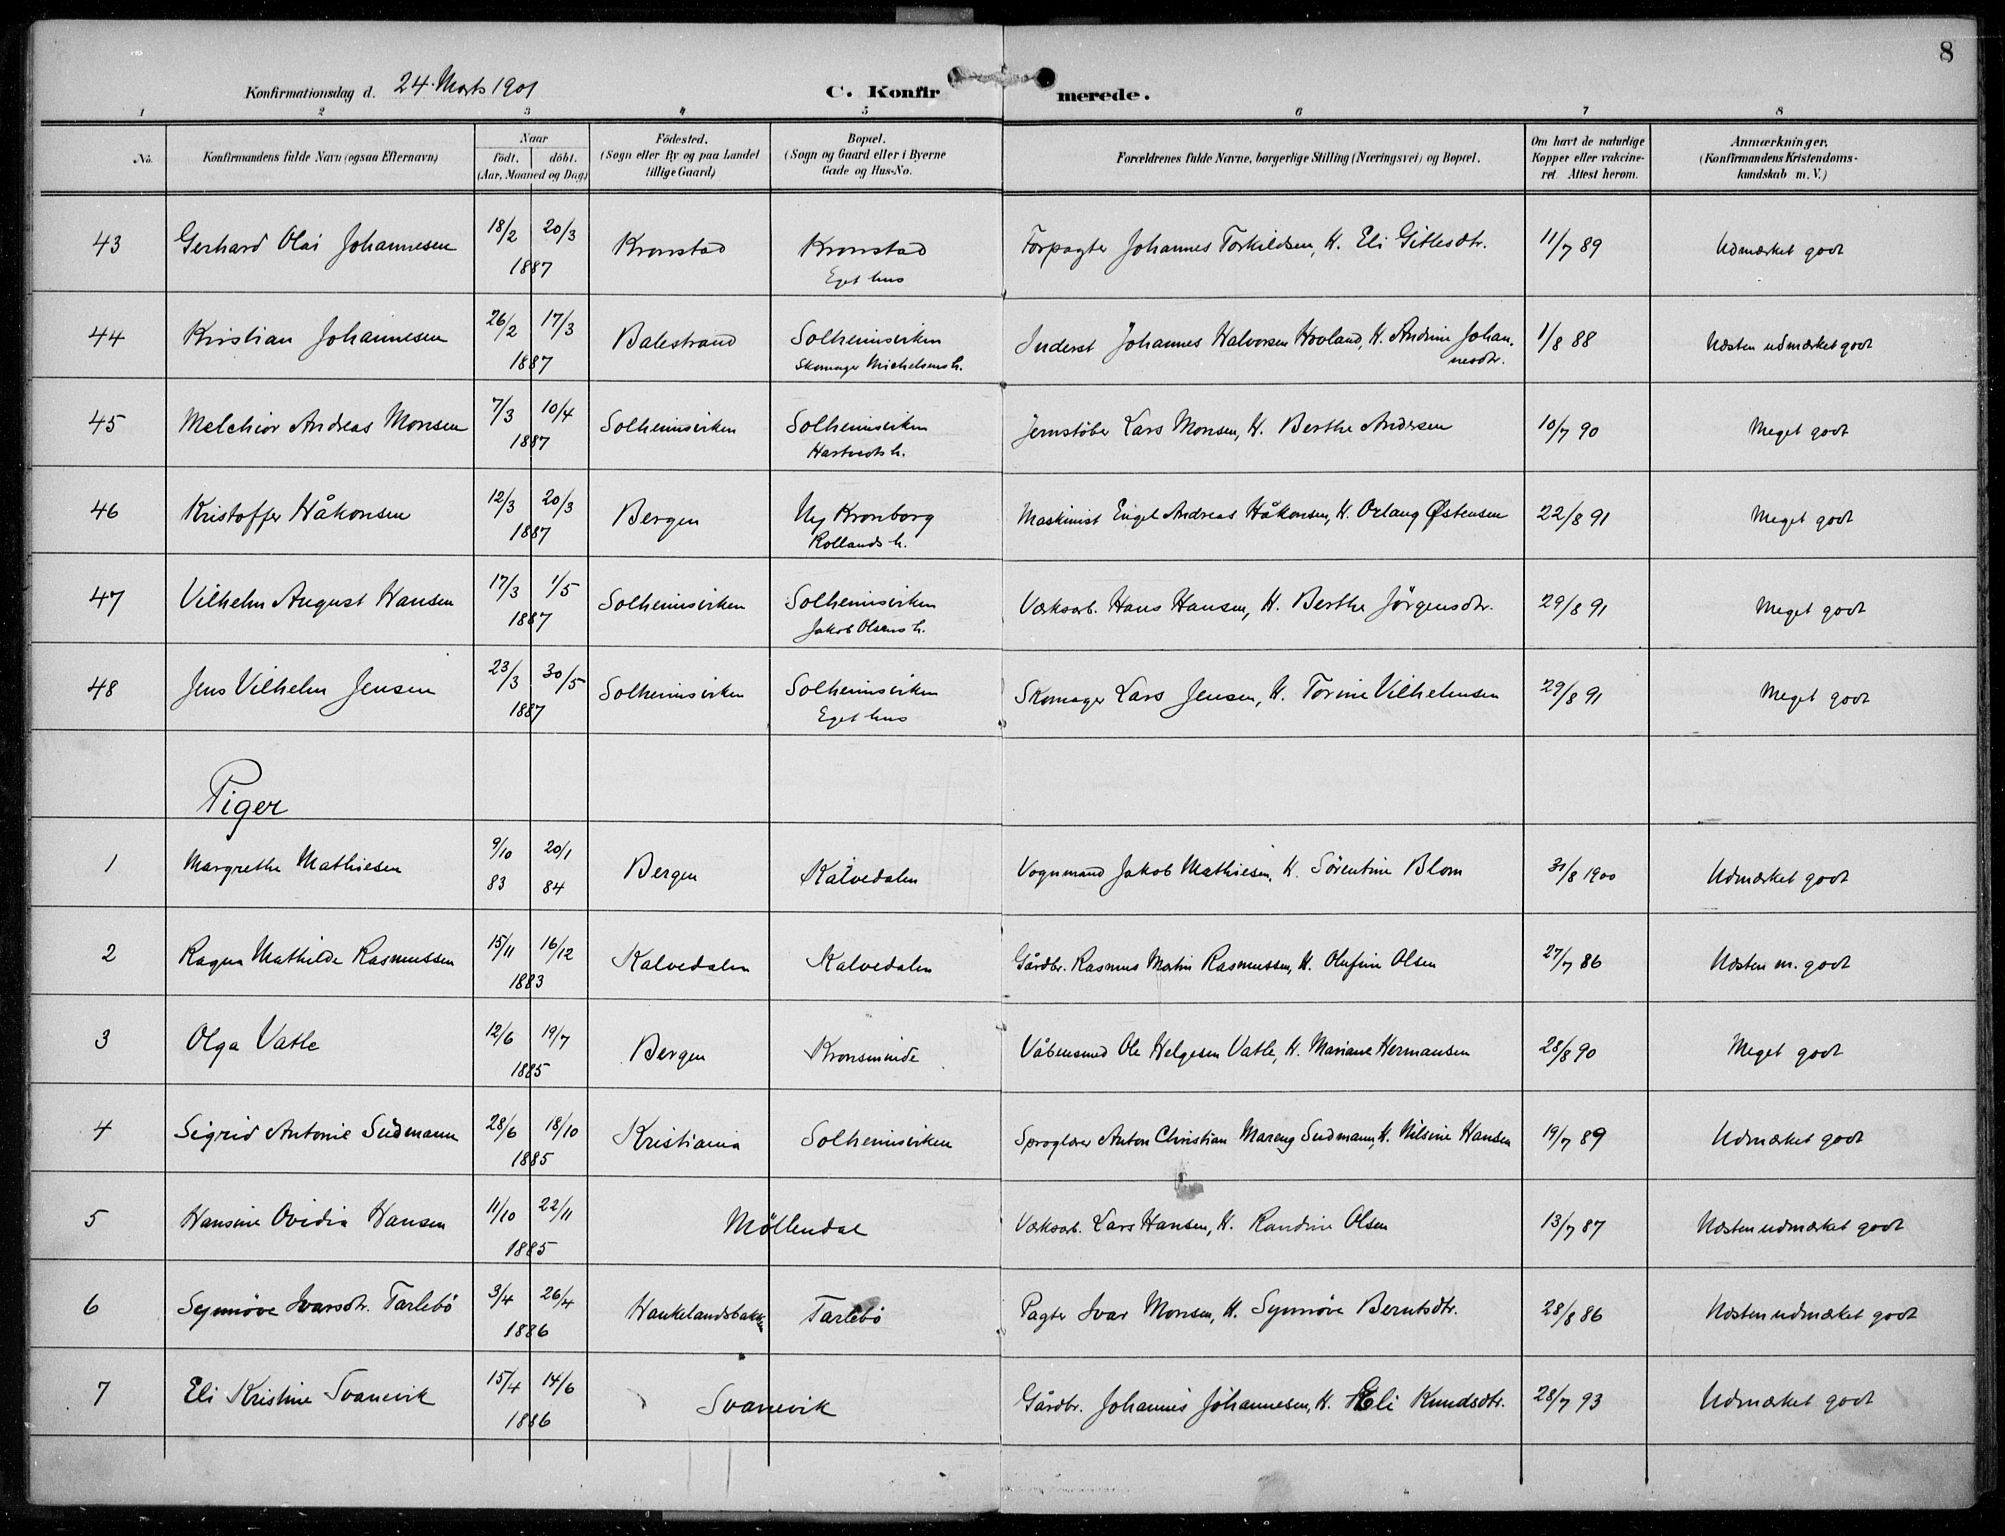 8
Konfirmationsdag d. 24. Marts 1901 C. Konfirmerede.
1 2 3 4 5 6 7 8
No. Konfirmandens fulde Navn (ogsaa Efternavn) Naar født. døbt. (Aar, Maaned og Dag) Fødested. (Sogn eller By og paa Landet tillige Gaard) Bopæl. (Sogn og Gaard eller i Byerne Gade og Hus-No. Forældrenes fulde Navne, borgerlige Stilling (Næringsvei) og Bopæl. Om havt de naturlige Kopper eller vakcineret. Attest herom. Anmærkninger. (Konfirmandens Kristendomskundskab m. V.)
43 Gerhard Olai Johannesen 18/2 20/3 1887 Kronstad Kronstad Eget hus Forpagter Johannes Torkildsen, H. Eli Gitlesdtr. 11/7 89 Udmærket godt
44 Kristian Johannesen 26/2 17/3 1887 Balestrand Solheimsviken Skomager Michelsens h. Inderst Johannes Halvorsen Hovland, H. Andrine Johannesdtr. 1/8 88 Næsten udmærket godt
45 Melchior Andreas Monsen 7/3 10/4 1887 Solheimsviken Solheimsviken Hartvedts h. Jernstøber Lars Monsen, H. Berthe Andersen 10/7 90 Meget godt
46 Kristoffer Håkonsen 12/3 20/3 1887 Bergen Ny Kronborg Rollands h. Maskinist Engel Andreas Håkonsen, H. Orlaug Østensen 22/8 91 Meget godt
47 Vilhelm August Hansen 17/3 1/5 1887 Solheimsviken Solheimsviken Jakob Olsens h. Værksarb. Hans Hansen, H. Berthe Jørgensdtr. 29/8 91 Meget godt
48 Jens Vilhelm Jensen 23/3 30/5 1887 Solheimsviken Solheimsviken Eget hus Skomager Lars Jensen, H. Torine Vilhelmsen 29/8 91 Meget godt
Piger
1 Margrethe Mathiesen 9/10 83 20/1 84 Bergen Kalvedalen Vognmand Jakob Mathiesen, H. Sørentine Blom 31/8 1900 Udmærket godt
2 Ragna Mathilde Rasmussen 15/11 16/12 1883 Kalvedalen Kalvedalen Gårdbr. Rasmus Martin Rasmussen, H. Olufine Olsen 27/7 86 Næsten m. godt
3 Olga Vatle 12/6 19/7 1885 Bergen Kronsminde Våbensmed Ole Helgesen Vatle, H. Mariane Hermansen 28/8 90 Meget godt
4 Sigrid Antonie Südmann 28/6 18/10 1885 Kristiania Solheimsviken Sproglærer Anton Christian Südmann, H. Nilsine Hansen 19/7 89 Udmærket godt
5 Hansine Ovidia Hansen 11/10 22/11 1885 Møllendal Værksarb. Lars Hansen, H. Randine Olsen 13/7 87 Næsten udmærket godt
6 Synnøve Ivarsdtr. Tarlebø 3/4 26/4 1886 Haukelandsbakken Tarlebø Pagter Ivar Monsen, H. Synnøve Berntsdtr. 28/8 86 Næsten udmærket godt
7 Eli Kristine Svanevik 15/4 14/6 1886 Svanevik Gårdbr. Johannes Johannesen, H. Eli Knudsdtr. 28/7 93 Udmærket godt